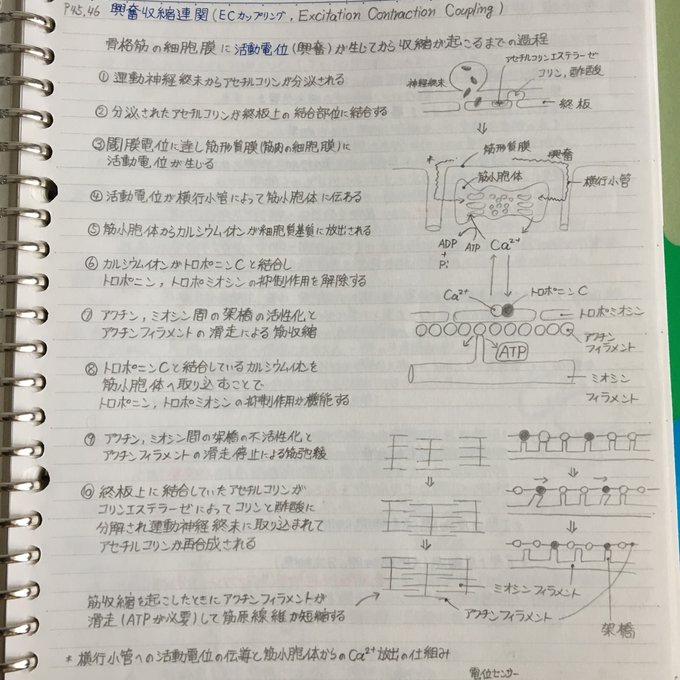 P45,46 興奮収縮連関(ECカップリング, Excitation Contraction Coupling)
骨格筋の細胞膜に活動電位(興奮)が生じてから収縮が起こるまでの過程
① 運動神経終末からアセチルコリンが分泌される
② 分泌されたアセチルコリンが終板上の結合部位に結合する
③ 閾膜電位に達し筋形質膜(筋肉の細胞膜)に
活動電位が生じる
④ 活動電位が横行小管によって筋小胞体に伝わる
⑤ 筋小胞体からカルシウムイオンが細胞質基質に放出される
⑥ カルシウムイオンがトロポニンCと結合し
トロポニン,トロポミオシンの抑制作用を解除する
⑦ アクチン,ミオシン間の架橋の活性化と
アクチンフィラメントの滑走による筋収縮
⑧ トロポニンCと結合しているカルシウムイオンを
筋小胞体へ取り込むことで
トロポニン,トロポミオシンの抑制作用が機能する
⑨ アクチン,ミオシン間の架橋の不活性化と
アクチンフィラメントの滑走停止による筋弛緩
⑩ 終板上に結合していたアセチルコリンが
コリンエステラーゼによってコリンと酢酸に
分解され運動神経終末に取り込まれて
アセチルコリンが再合成される
筋収縮を起こしたときにアクチンフィラメントが
滑走(ATPが必要)して筋原線維が短縮する
* 横行小管への活動電位の伝導と筋小胞体からのCa²⁺放出の仕組み
電位センサー
アセチルコリンエステラーゼ
コリン,酢酸
神経終末
終板
筋形質膜
興奮
*
筋小胞体
横行小管
ADP
+
Pi
ATP
Ca²⁺
Ca²⁺
トロポニンC
トロポミオシン
アクチン
フィラメント
ATP
ミオシン
フィラメント
ミオシンフィラメント
アクチンフィラメント
架橋